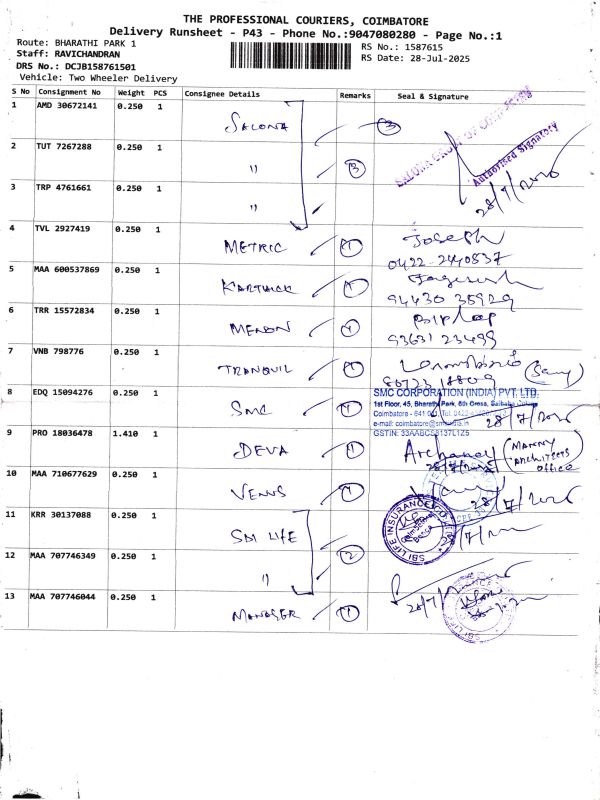 THE PROFESSIONAL COURIERS, COIMBATORE
Delivery Runsheet - P43 - Phone No.:9047080280 - Page No.:1
Route: BHARATHI PARK 1
RS No.: 1587615
Staff: RAVICHANDRAN
RS Date: 28-Jul-2025
DRS No.: DCJB158761501
Vehicle: Two Wheeler Delivery
S No Consignment No Weight PCS Consignee Details Remarks Seal & Signature
1 AMD 30672141 0.250 1 SALONA 3
SALONA GROUP OF COMPANIES
Authorised Signatory
2 TUT 7267288 0.250 1 " 3
3 TRP 4761661 0.250 1 "
4 TVL 2927419 0.250 1 METRIC 1 Joseph
0422-2440537
5 MAA 600537869 0.250 1 KARTHICK 1
94430 35929
6 TRR 15572834 0.250 1 MENON 1
93631 23499
7 VNB 798776 0.250 1 TRANQUIL 1
8 EDQ 15094276 0.250 1 SMC 1
SMC CORPORATION (INDIA) PVT. LTD.
1st Floor, 45, Bharathi Park, 6th Cross, Saibaba Colony
Coimbatore - 641
e-mail: coimbatore@smcindia.in
GSTIN:
9 PRO 18036478 1.410 1 DEVA 1 Archana (MANNY ARCHITECTS office)
10 MAA 710677629 0.250 1 VENUS 1
11 KRR 30137088 0.250 1 SBI LIFE 2
SBI LIFE INSURANCE CO
12 MAA 707746349 0.250 1 "
13 MAA 707746044 0.250 1 MANAGER 1